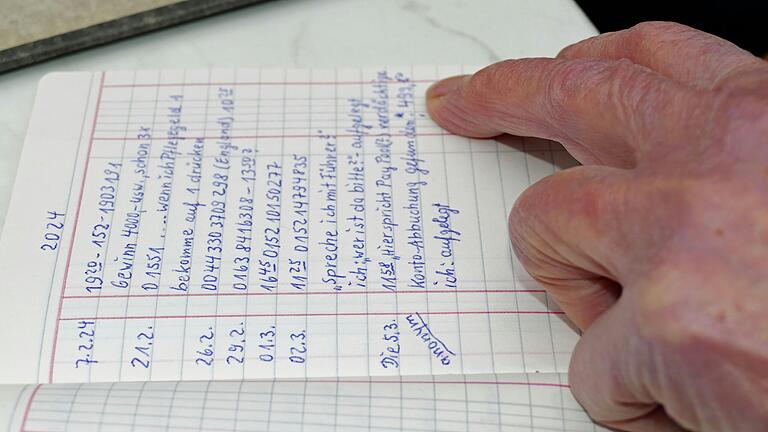 2024
7.2.24 19²⁰ - 152-1903191
Gewinn 4000,- usw., schon 3x
21.2. 01551 ... wenn ich Pflegegeld 1
bekomme auf 1 drücken
26.2. 00443303709298 (England) 10²⁵
29.2. 01638416308 - 13⁵⁰?
01.3. 16⁴⁵ 0152 10150277
02.3. 11²⁵ 015214794835
„Spreche ich mit Führer?"
ich: „wer ist da bitte?" - aufgelegt
Die 5.3. 11⁵⁸ „Hier spricht Pay verdächtige
anonym Konto-Abbuchung gefunden."
ich: aufgelegt